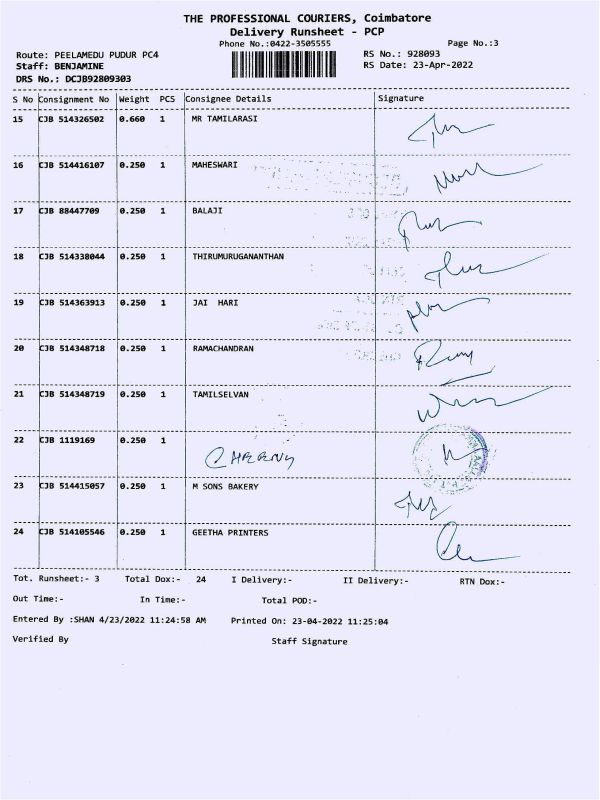 THE PROFESSIONAL COURIERS, Coimbatore
Delivery Runsheet - PCP
Phone No.:0422-3505555
Page No.:3
Route: PEELAMEDU PUDUR PC4
RS No.: 928093
Staff: BENJAMINE
RS Date: 23-Apr-2022
DRS No.: DCJB92809303
S No Consignment No Weight PCS Consignee Details Signature
15 CJB 514326502 0.660 1 MR TAMILARASI
16 CJB 514416107 0.250 1 MAHESWARI
17 CJB 88447709 0.250 1 BALAJI
18 CJB 514338044 0.250 1 THIRUMURUGANANTHAN
19 CJB 514363913 0.250 1 JAI HARI
20 CJB 514348718 0.250 1 RAMACHANDRAN
21 CJB 514348719 0.250 1 TAMILSELVAN
22 CJB 1119169 0.250 1
23 CJB 514415057 0.250 1 M SONS BAKERY
24 CJB 514105546 0.250 1 GEETHA PRINTERS
Tot. Runsheet:- 3 Total Dox:- 24 I Delivery:- II Delivery:- RTN Dox:-
Out Time:- In Time:- Total POD:-
Entered By :SHAN 4/23/2022 11:24:58 AM Printed On: 23-04-2022 11:25:04
Verified By Staff Signature